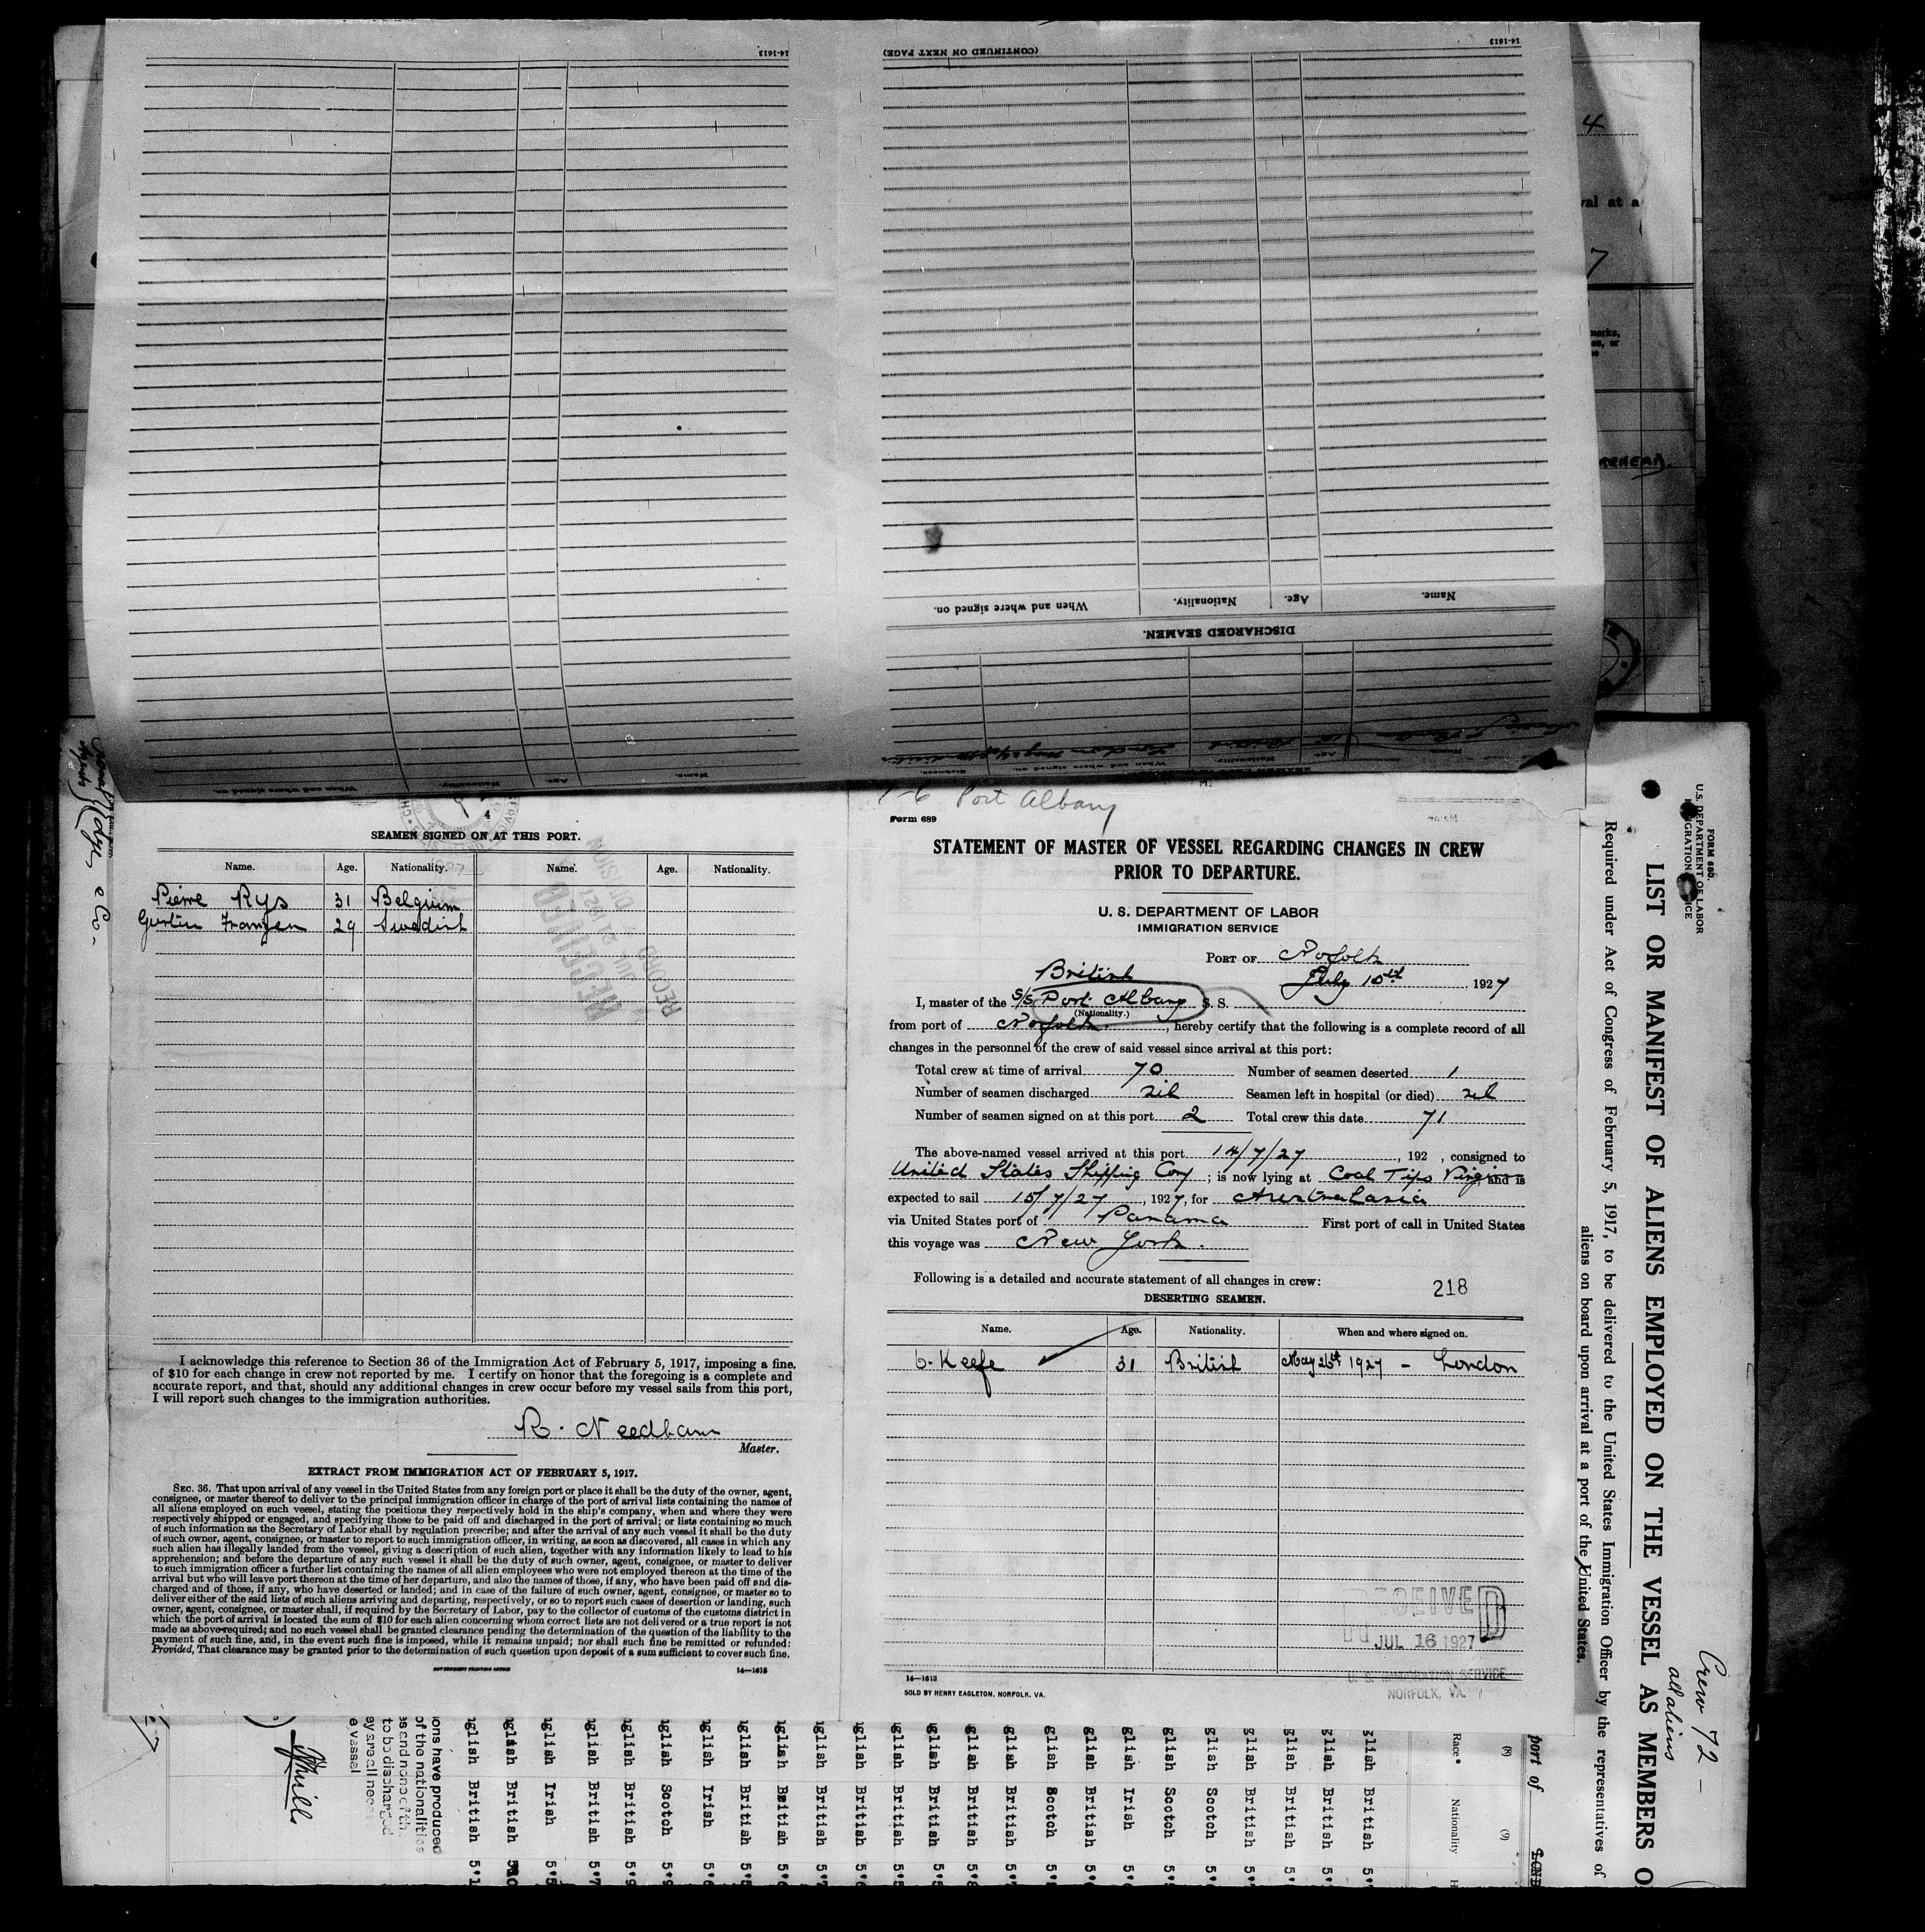 14-1613
(CONTINUED ON NEXT PAGE)
14-1613
When and where signed on.
Nationality.
Age.
Name.
DISCHARGED SEAMEN.
4
SEAMEN SIGNED ON AT THIS PORT.
Name. Age. Nationality. Name. Age. Nationality.
Pierre Rys 31 Belgium
Franzen 29 Swedish
RECEIVED
JUL 21 1927
RECORD DIVISION
I acknowledge this reference to Section 36 of the Immigration Act of February 5, 1917, imposing a fine
of $10 for each change in crew not reported by me. I certify on honor that the foregoing is a complete and
accurate report, and that, should any additional changes in crew occur before my vessel sails from this port,
I will report such changes to the immigration authorities.
R. Needham
Master.
EXTRACT FROM IMMIGRATION ACT OF FEBRUARY 5, 1917.
SEC. 36. That upon arrival of any vessel in the United States from any foreign port or place it shall be the duty of the owner, agent,
consignee, or master thereof to deliver to the principal immigration officer in charge of the port of arrival lists containing the names of
all aliens employed on such vessel, stating the positions they respectively hold in the ship's company, when and where they were
respectively shipped or engaged, and specifying those to be paid off and discharged in the port of arrival; or lists containing so much
of such information as the Secretary of Labor shall by regulation prescribe; and after the arrival of any such vessel it shall be the duty
of such owner, agent, consignee, or master to report to such immigration officer, in writing, as soon as discovered, all cases in which any
such alien has illegally landed from the vessel, giving a description of such alien, together with any information likely to lead to his
apprehension; and before the departure of any such vessel it shall be the duty of such owner, agent, consignee, or master to deliver
to such immigration officer a further list containing the names of all alien employees who were not employed thereon at the time of the
arrival but who will leave port thereon at the time of her departure, and also the names of those, if any, who have been paid off and dis-
charged and of those, if any, who have deserted or landed; and in case of the failure of such owner, agent, consignee, or master so to
deliver either of the said lists of such aliens arriving and departing, respectively, or so to report such cases of desertion or landing, such
owner, agent, consignee, or master shall, if required by the Secretary of Labor, pay to the collector of customs of the customs district in
which the port of arrival is located the sum of $10 for each alien concerning whom correct lists are not delivered or a true report is not
made as above required; and no such vessel shall be granted clearance pending the determination of the question of the liability to the
payment of such fine, and, in the event such fine is imposed, while it remains unpaid; nor shall such fine be remitted or refunded:
Provided, That clearance may be granted prior to the determination of such question upon deposit of a sum sufficient to cover such fine.
GOVERNMENT PRINTING OFFICE 14—1613
Port Albany
Form 689
STATEMENT OF MASTER OF VESSEL REGARDING CHANGES IN CREW
PRIOR TO DEPARTURE.
U. S. DEPARTMENT OF LABOR
IMMIGRATION SERVICE
PORT OF Norfolk
British July 15th, 1927
I, master of the S/S Port Albany S. S.
(Nationality.)
from port of Norfolk, hereby certify that the following is a complete record of all
changes in the personnel of the crew of said vessel since arrival at this port:
Total crew at time of arrival 70 Number of seamen deserted 1
Number of seamen discharged nil Seamen left in hospital (or died) nil
Number of seamen signed on at this port 2 Total crew this date 71
The above-named vessel arrived at this port 14/7/27, 192 , consigned to
United States Shipping Cony; is now lying at Coal Tips Virginia and is
expected to sail 15/7/27, 1927, for Australasia
via United States port of Panama First port of call in United States
this voyage was New York.
Following is a detailed and accurate statement of all changes in crew: 218
DESERTING SEAMEN.
Name. Age. Nationality. When and where signed on.
O. Keefe 31 British May 25th 1927 - London
RECEIVED
JUL 16 1927
U. S. IMMIGRATION SERVICE
NORFOLK, VA.
14—1613
SOLD BY HENRY EAGLETON, NORFOLK, VA.
FORM 680.
U.S. DEPARTMENT OF LABOR
IMMIGRATION SERVICE
LIST OR MANIFEST OF ALIENS EMPLOYED ON THE VESSEL AS MEMBERS O
Required under Act of Congress of February 5, 1917, to be delivered to the United States Immigration Officer by the representatives of
aliens on board upon arrival at a port of the United States.
Crew 72 -
all aliens
port of LOND
(8) (9)
Race* Nationality H
glish British 5'
glish British 5'
glish British 5'
glish British 5'
glish Scotch 5'
glish Scotch 5'
glish Irish 5'
glish British 5'
glish Scotch 5'8
glish British 5'
glish British 5'8
glish British 5'5
glish British 5'6
glish British 5'7
nglish British 5'6
nglish British 5'5
nglish Irish 5'6
nglish Scotch 5'9
nglish British 5'9
nglish British 5'7
nglish Irish 5'5
nglish British
nglish British 5'1
ons have produced
of the nationalities
es and none of th
to be discharged
ey are all neces
e vessel